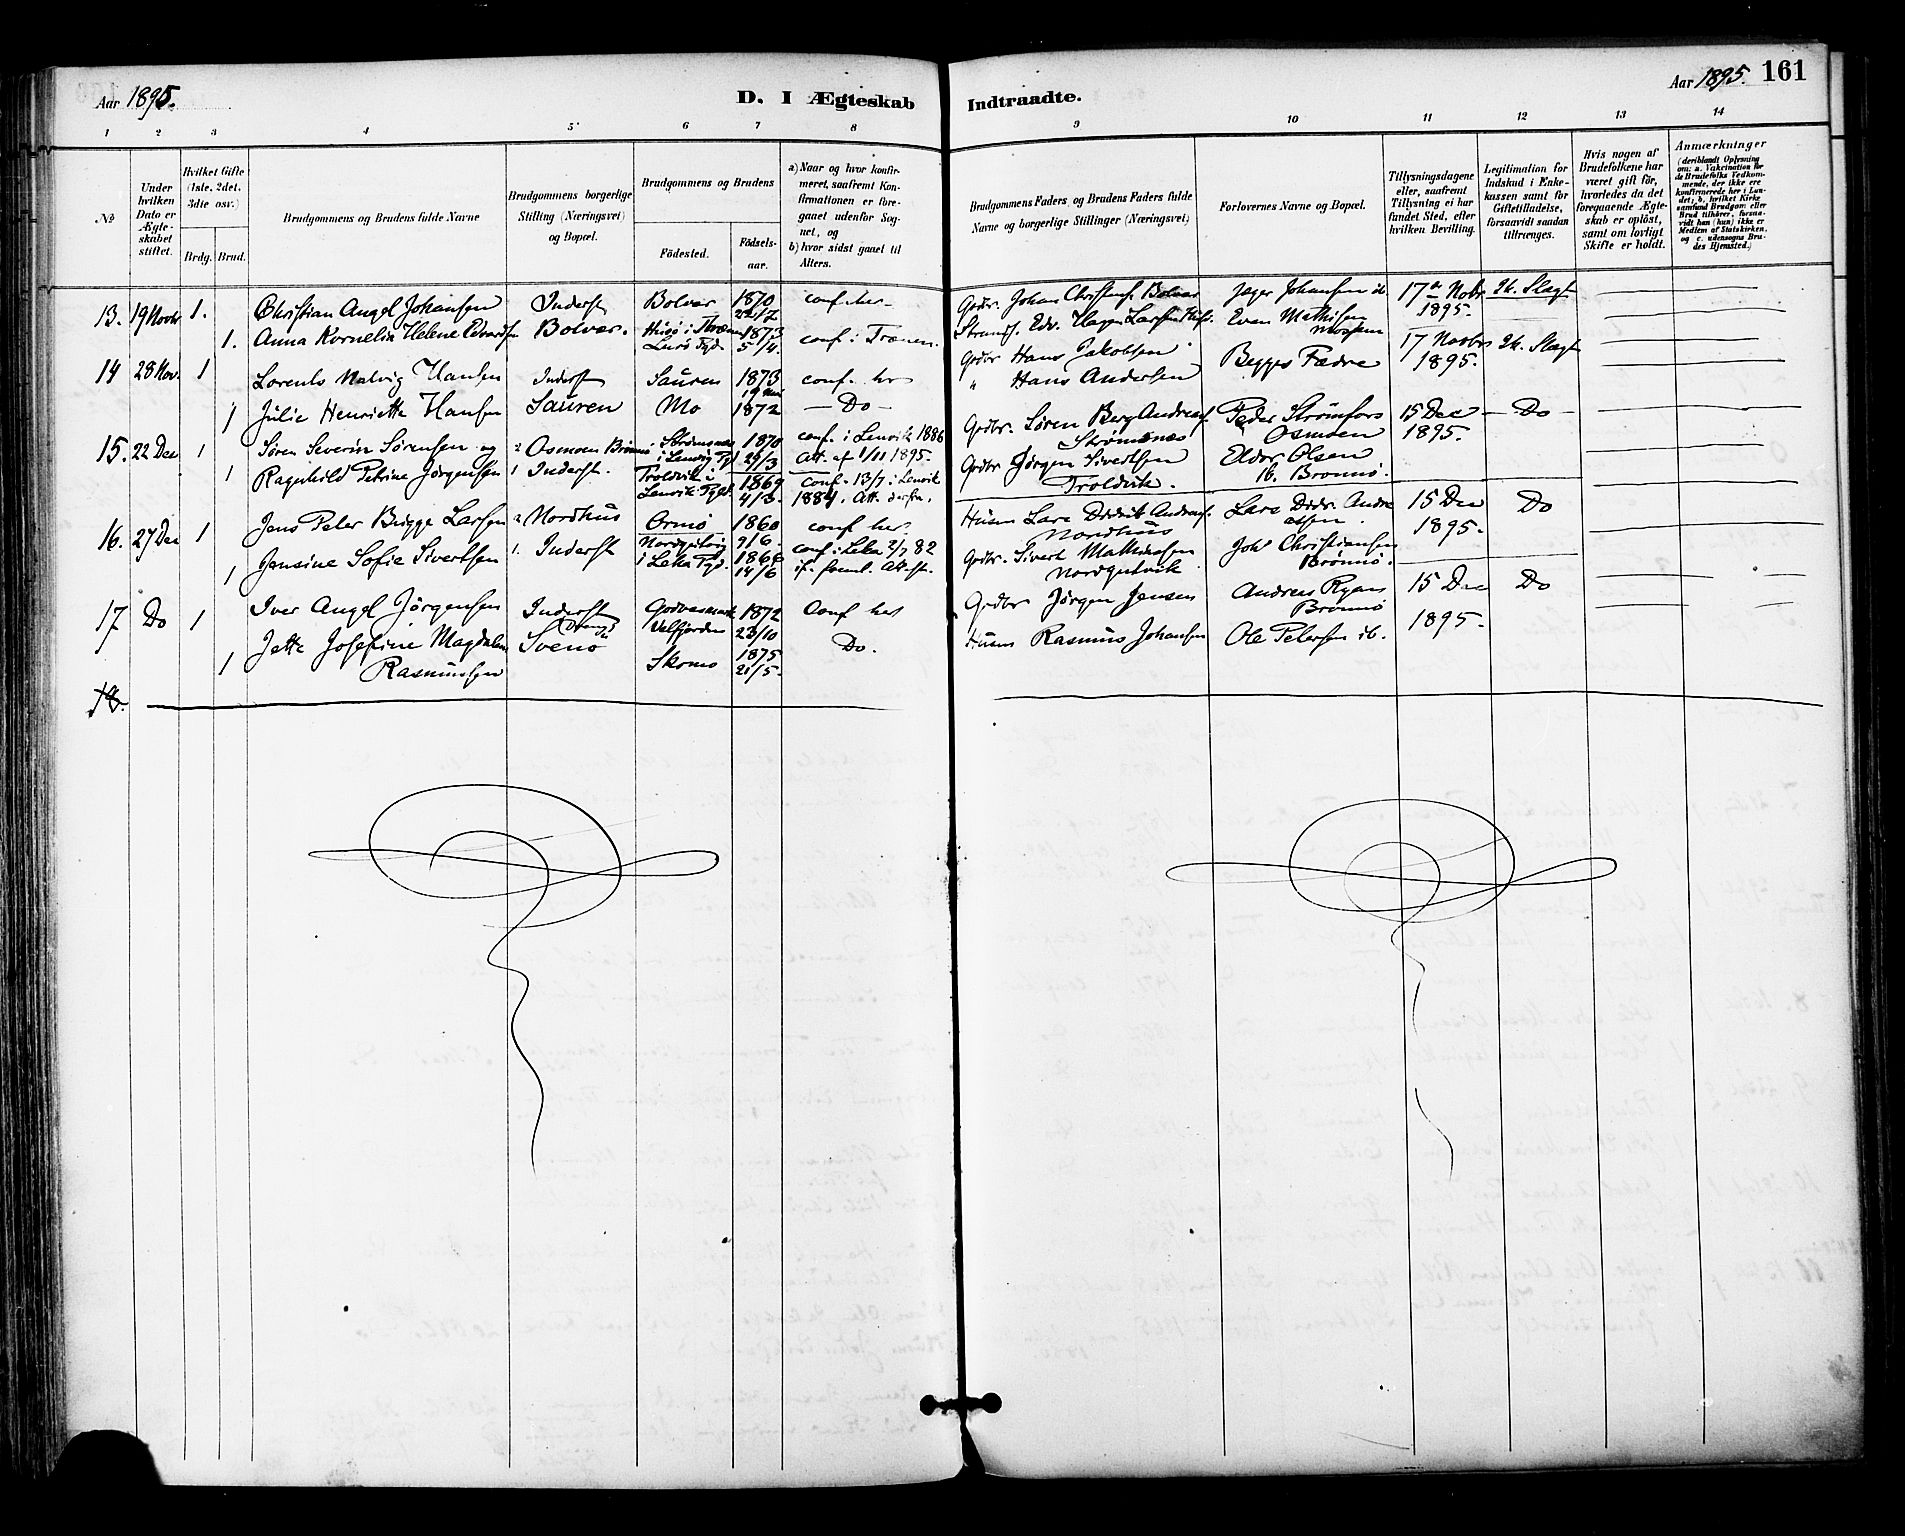 Aar 1895.
D. I Ægteskab
Indtraadte.
Aar 1895. 161
1 2 3 4 5 6 7 8 9 10 11 12 13 14
№
Under hvilken Dato er Ægteskabet stiftet.
Hvilket Gifte (1ste, 2det, 3die osv.).
Brdg. Brud.
Brudgommens og Brudens fulde Navne
Brudgommens borgerlige Stilling (Næringsvei) og Bopæl.
Brudgommens og Brudens
Födested.
Födselsaar.
a) Naar og hvor konfirmeret, saafremt Konfirmationen er foregaaet udenfor Sognet, og
b) hvor sidst gaaet til Alters.
Brudgommens Faders og Brudens Faders fulde Navne og borgerlige Stillinger (Næringsvei)
Forlovernes Navne og Bopæl.
Tillysningsdagene eller, saafremt Tillysning ei har fundet Sted, efter hvilken Bevilling.
Legitimation for Indskud i Enkekassen samt for Giftetilladelse, forsaavidt saadan tiltrænges.
Hvis nogen af Brudefolkene har været gift för, hvorledes da det foregaaende Ægteskab er oplöst, samt om lovligt Skifte er holdt.
Anmærkninger
(deriblandt Oplysning om: a. Vakcination for de Brudefolks Vedkommende, der ikke ere konfirmerede her i Landet; b. hvilket Kirkesamfund Brudgom eller Brud tilhörer, forsaavidt han (hun) ikke er Medlem af Statskirken, og c. udensogns Brudes Hjemsted.)
13. 19 Novbr 1. Christian Angel Johansen Inderst Bolvær 1870 22/7 conf. her Grdbr. Johan Christensen Bolvær Jæger Johansen ib 17de Novbr 1895. Sk. Slagt
1. Anna Kornelia Helene Edvardsen Bolvær. Husø i Trænen Lurø Pgd. 1873 5/4. conf. i Trænen. Edv. Hagen Larsen Even Mathisen
14 28 Nov. 1 Lorents Malvig Hansen Inderst Sauren 1873 conf. her Grdbr Hans Jakobsen 17 Novbr 1895. Sk. Slagt
1 Julie Henriette Hansen Sauren Mo 1872 — Do — " Hans Andersen
15. 22 Dec 1 Søren Severin Sørensen og 2 Osmoen Brønnø Strømsnes i Lenvig Pgd 1870 29/3 conf. i Lenvik 1886 Att. af 1/11 1895. Grdbr. Søren Berg Andreas. Strømsnes Peder Strømfors Osmoen 15 Dec 1895. — Do —
1 Ragnhild Petrine Jørgensen 1 Inderst. Troldvik i Lenvik Pgld. 1869 4/3. conf. 13/7 i Lenvik 1884. Att. derfra. Grdbr Jørgen Sivertsen Troldvik. Eldor Olsen ib. Brønnø.
16. 27 Dec 1 Jens Peter Brygge Larsen 2 Nordhus Ormø 1860 9/6. conf her. Husm Lars Didrik Andreas. Nordhus Lars Didr. Andreassen. 15 Dec 1895. Do
1 Jensine Sofie Sivertsen 1. Inderst i Leka Pgd. 1866 14/6 conf. i Leka 2/7 82 if. freml. Attest. Grdbr. Sivert Mathiasen Joh. Christiansen Brønnø.
17 Do 1 Iver Angel Jørgensen Inderst Velfjorden 1872 23/10 Conf her Grdbr Jørgen Jensen Andreas Ryan Brønnø 15 Dec 1895. Do
1 Jette Josefine Magdalene Rasmussen Svenø Skomo 1875 21/5. Do. Husm Rasmus Johansen Ole Petersen ib.
18.